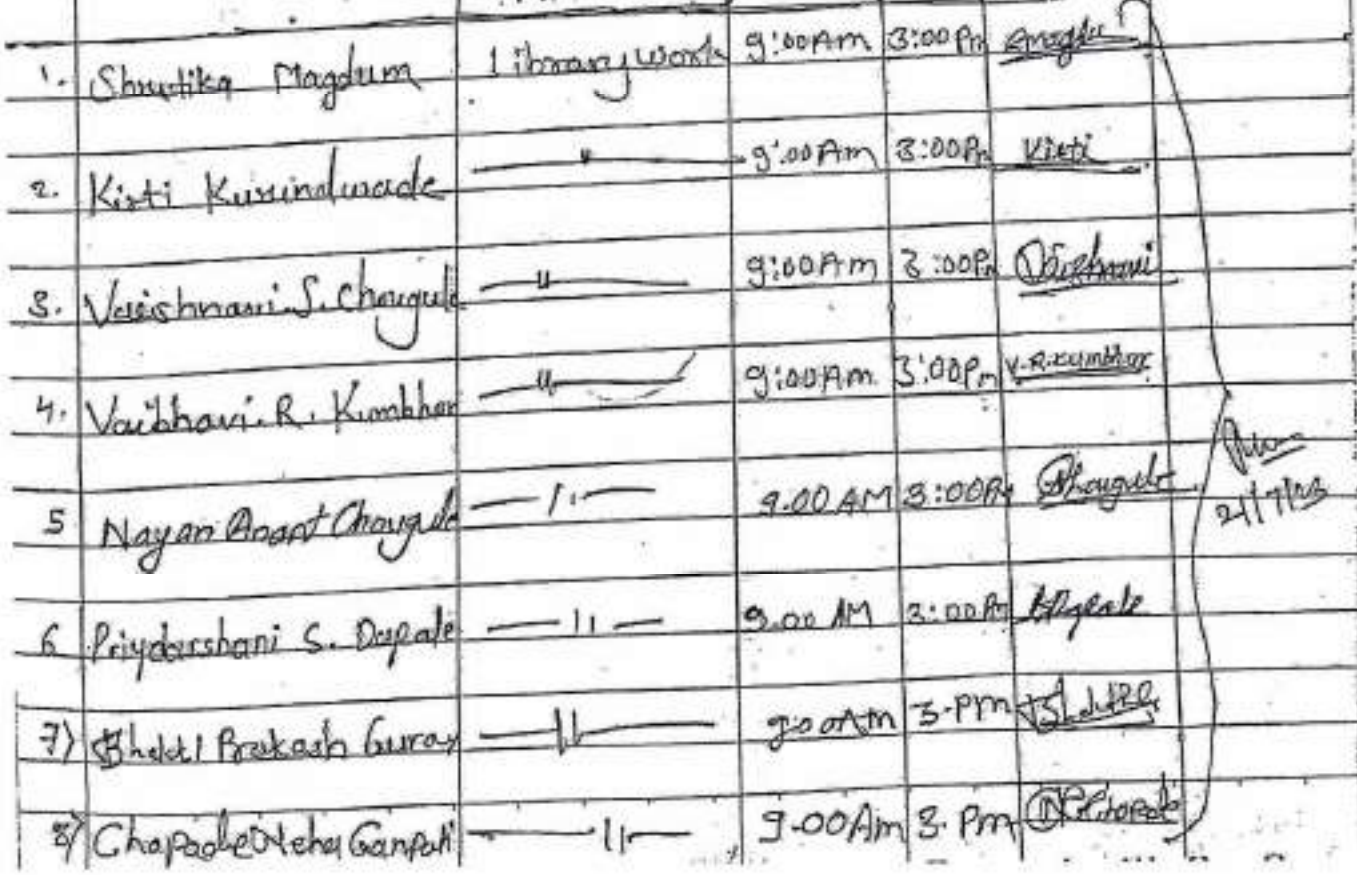 1. Shrutika Magdum Library work 9:00 Am 3:00 Pm
2. Kirti Kurundwade — " — 9:00 Am 3:00 Pm Kirti
3. Vaishnavi. S. Chougule — " — 9:00 Am 3:00 Pm Vaishnavi
4. Vaibhavi. R. Kumbhar — " — 9:00 Am 3:00 Pm V.R.Kumbhar
5 Nayan Anant Chougule — " — 9.00 AM 3:00 Pm Chougule
21/7/23
6 Priydarshani S. Dapale — " — 9.00 AM 3:00 Pm
7) Bhakti Prakash Gurav — " — 9:00 Am 3.Pm
8) Chapaole Neha Ganpati — " — 9.00 Am 3. Pm